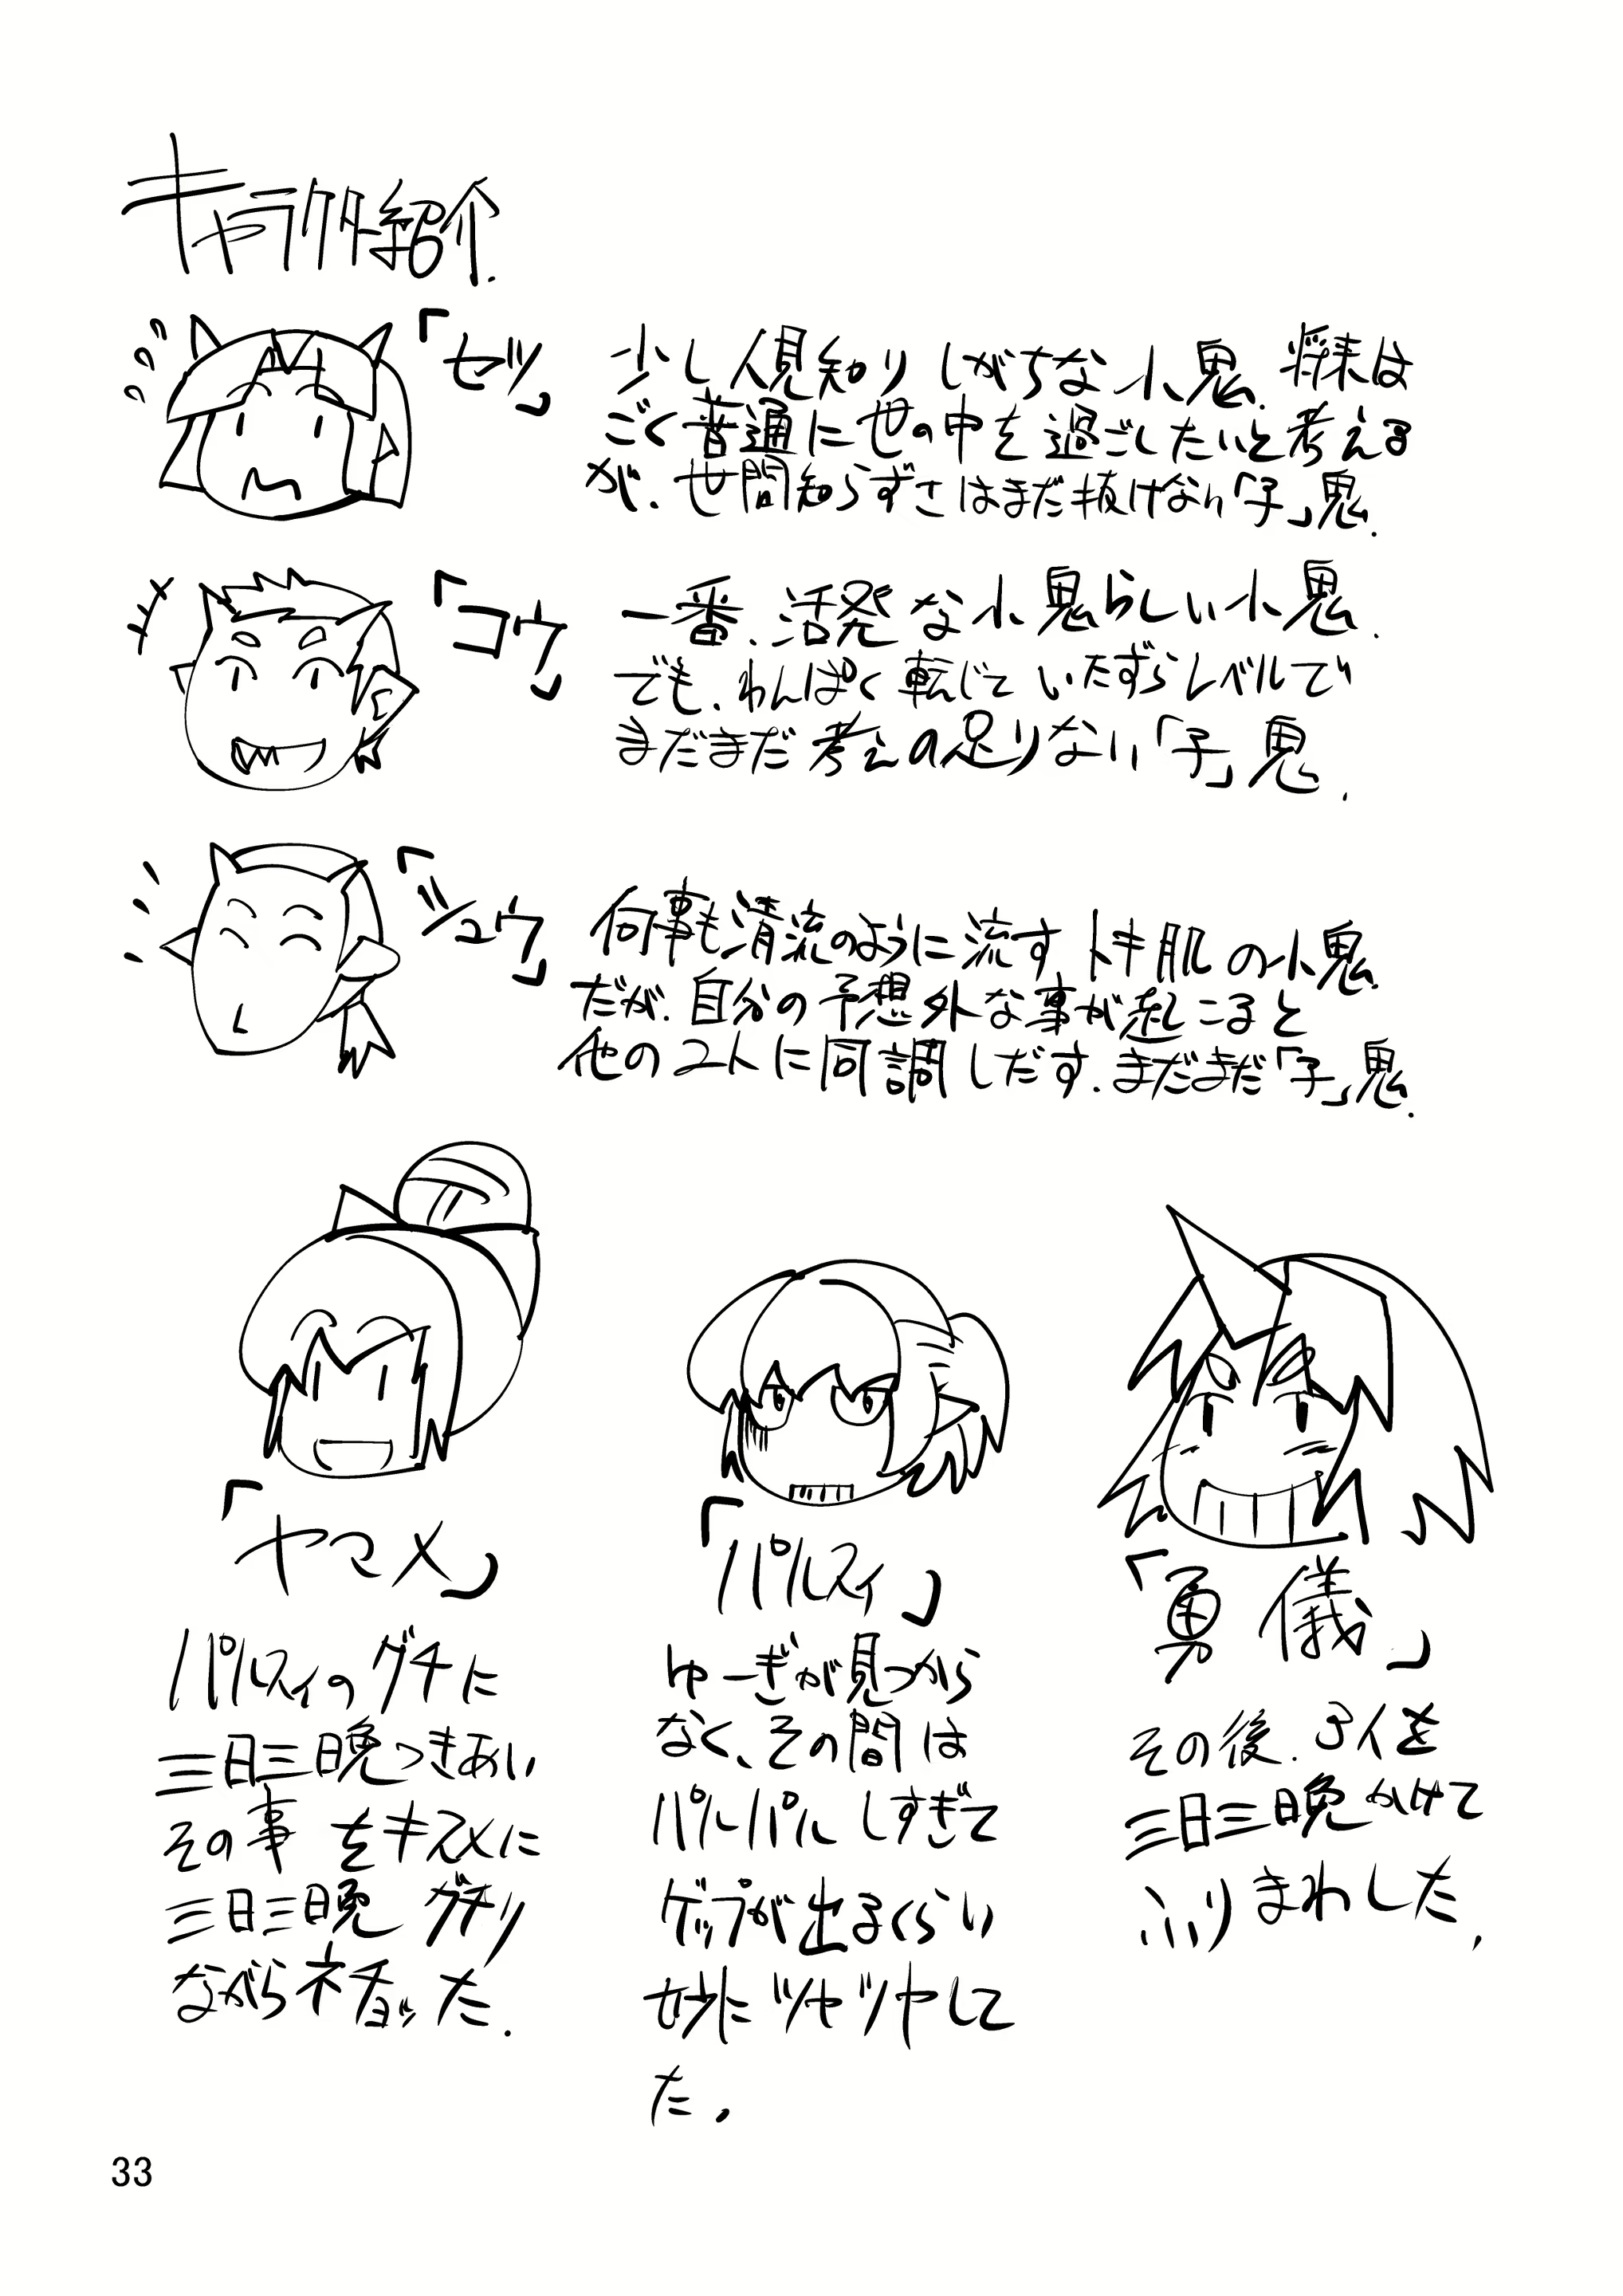 キャラクター紹介.
「セツ」
少し人見知りしがちな小鬼.将来は
ごく普通に世の中を過ごしたいと考える
が.世間知らずさはまだ抜けない「子」鬼.
「コウ」
一番.活発な小鬼らしい小鬼.
でも.わんぱく転じていたずらレベルで
まだまだ考えの足りない「子」鬼.
「シュウ」
何事も清流のように流すトキ肌の小鬼
だが.自分の予想外な事が起こると
他の2人に同調しだす.まだまだ「子」鬼.
「ヤマメ」
パルスィのグチに
三日三晩つきあい
その事をキスメに
三日三晩グチり
ながらネチョッた.
「パルスィ」
ゆーぎが見つから
なく、その間は
パルパルしすぎて
ゲップが出るくらい
妙にツヤツヤして
た.
「勇儀」
その後.3人を
三日三晩かけて
ふりまわした.
33